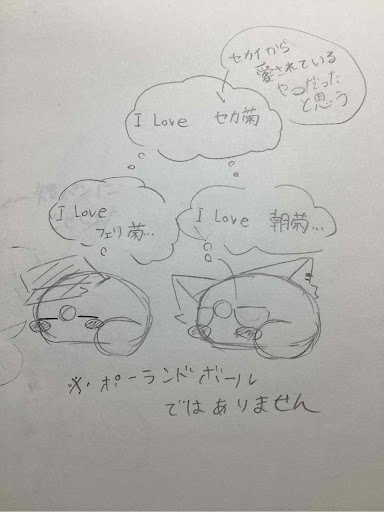 セカイから
愛されている
やつだった
と思う
I Love セカ菊
I Love
フェリ菊...
I Love 朝菊...
※・ポーランドボール
ではありません